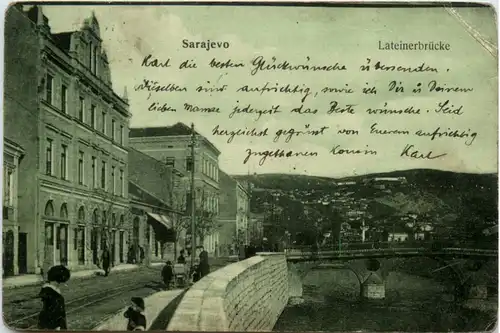 Sarajevo
Lateinerbrücke
Karl die besten Glückwünsche übersenden
Dieselben sind aufrichtig, sowie ich Dir u Deiner
lieben Mamae jederzeit das Beste wünsche. Seid
herzlichst gegrüßt von Eueren aufrichtig
zugethanen Karl